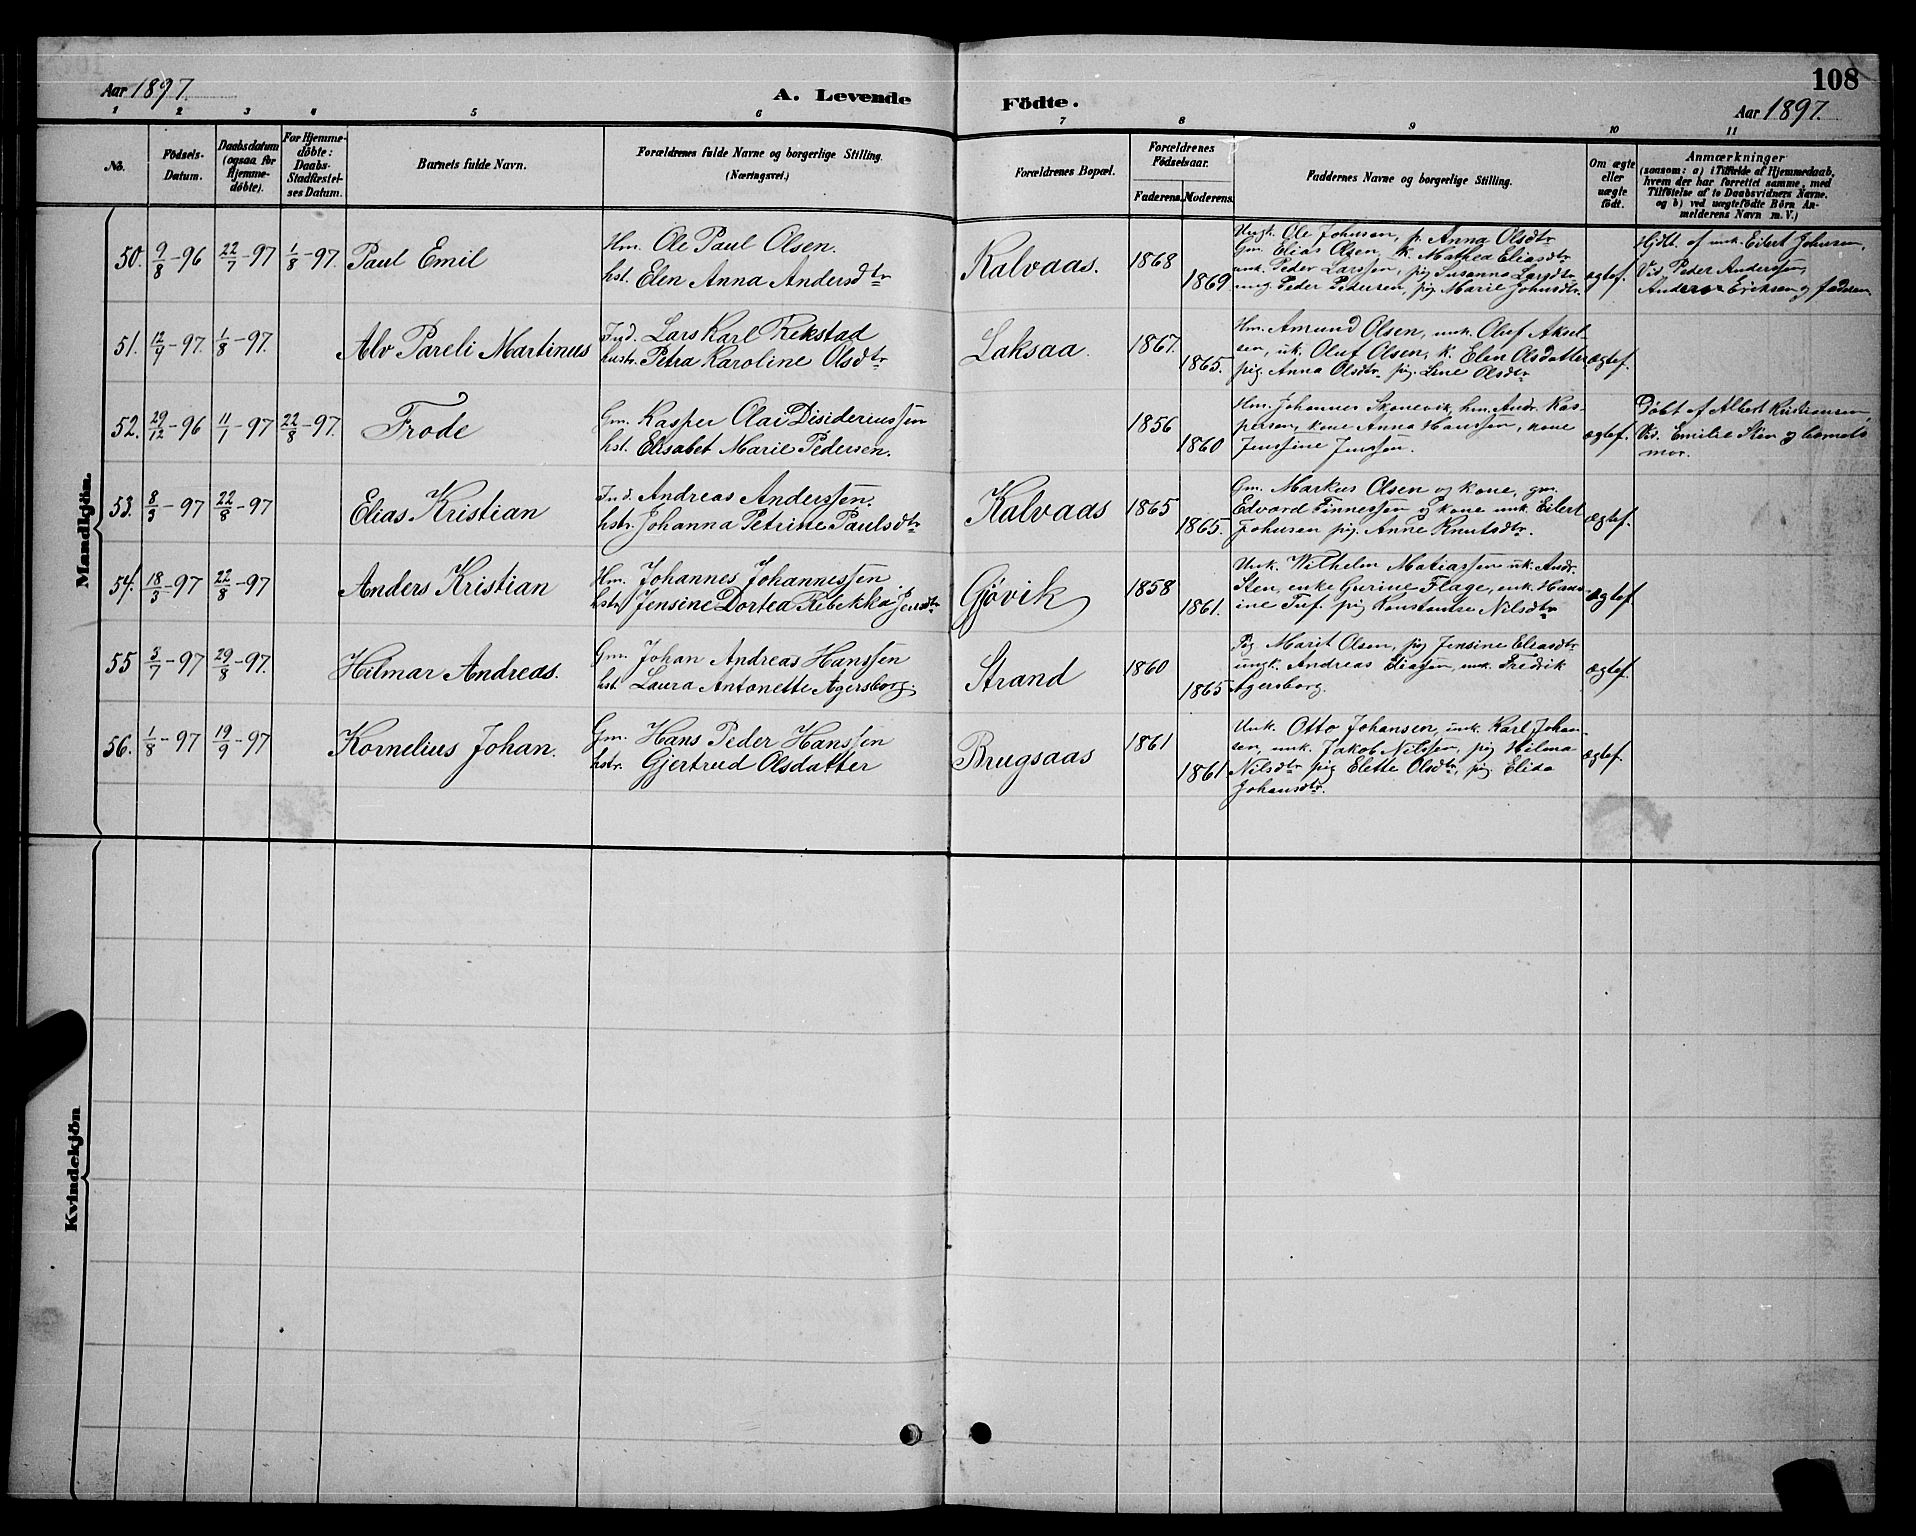 108
Aar 1897. A. Levende Födte. Aar 1897.
1 2 3 4 5 6 7 8 9 10 11
No.
Födsels-Datum.
Daabsdatum (ogsaa for Hjemme-döbte).
For Hjemme-döbte: Daabs-Stadfæstel-ses Datum.
Barnets fulde Navn.
Forældrenes fulde Navne og borgerlige Stilling. (Næringsvei.)
Forældrenes Bopæl.
Forældrenes Födselsaar.
Faderens. Moderens.
Faddernes Navne og borgerlige Stilling.
Om ægte eller uægte födt.
Anmærkninger
(saasom: a) i Tilfælde af Hjemmedaab,
hvem der har forrettet samme, med
Tilföielse af to Daabsvidners Navne,
og b) ved uægtefödte Börn An-
melderens Navn m. V.)
Mandkjön.
50. 9/8-96 22/7-97 1/8-97. Paul Emil
Hm. Ole Paul Olsen.
hst. Elen Anna Andersdtr
Kalvaas. 1868 1869
Ungk. Ole Johnsen, p. Anna Olsdtr
Gm. Elias Olsen, k. Mathea Eliasdtr
unk. Peder Larssen, pig Susanna Larsdtr
ung. Peder Pedersen, pig Marie Johnsdtr.
ægtef.
Hjdt. af unk. Eilert Johnsen,
Vid. Peder Anderssen,
Anders Eriksen og faderen
51. 12/9-97. 1/8-97. Alv Pareli Martinus
Ind. Lars Karl Rekstad
hustr. Petra Karoline Olsdtr
Laksaa. 1867. 1865.
Hm. Amund Olsen, unk. Oluf Aksel-
sen, uk. Oluf Olsen, k. Elen Olsdatter
pig. Anna Olsdtr pig. Line Olsdtr
ægtef.
52. 29/12-96 11/1-97 22/8-97. Frode
Gm. Kasper Olai Disideriussen
hst. Elisabet Marie Pedersen.
1856 1860
Hm. Johannes Skonevik, hm. Andr. Kas-
persen, kone Anna Hanssen, kone
Jenssine Jenssen.
ægtef.
Döbt af Albert Kristiansen,
Vid. Emilie Sten og barnets
mor.
53. 8/3-97 22/8-97 Elias Kristian
Ind. Andreas Anderssen.
hstr. Johanna Petrine Paulsdtr
Kalvaas 1865 1865.
Gm. Markus Olsen og kone, gm.
Edvard Finnessen og kone unk. Eilert
Johnsen pig. Anne Knutsdtr.
ægtef.
54. 18/3-97 22/8-97 Anders Kristian
Hm. Johannes Johannessen
hstr. Jensine Dortea Rebekka Jensdtr
Gjøvik 1858 1861.
Unk. Wilhelm Matiassen uk. Andr.
Sten, enke Gurine Flage, enk. Hans-
ine Tuf. pig Konstanse Nilsdtr
ægtef.
55 3/7-97 29/8-97. Hilmar Andreas.
Gm. Johan Andreas Hanssen
hst. Laura Antonette Agersborg.
Strand 1860 1865
Pig Marit Olsen, pig Jensine Eliasdtr
ungk. Andreas Eliassen, unk. Fredrik
Agersborg.
ægtef.
56. 1/8-97 19/9-97 Kornelius Johan.
Gm. Hans Peder Hanssen
hstr. Gjertrud Olsdatter
Brugsaas 1861 1861
Unk. Otto Johansen, unk. Karl Johan-
sen, unk. Jakob Nilssen, pig Hilma
Nilsdtr pig Elette Olsdtr, pig. Elida
Johansdtr.
ægtef.
Kvindekjön